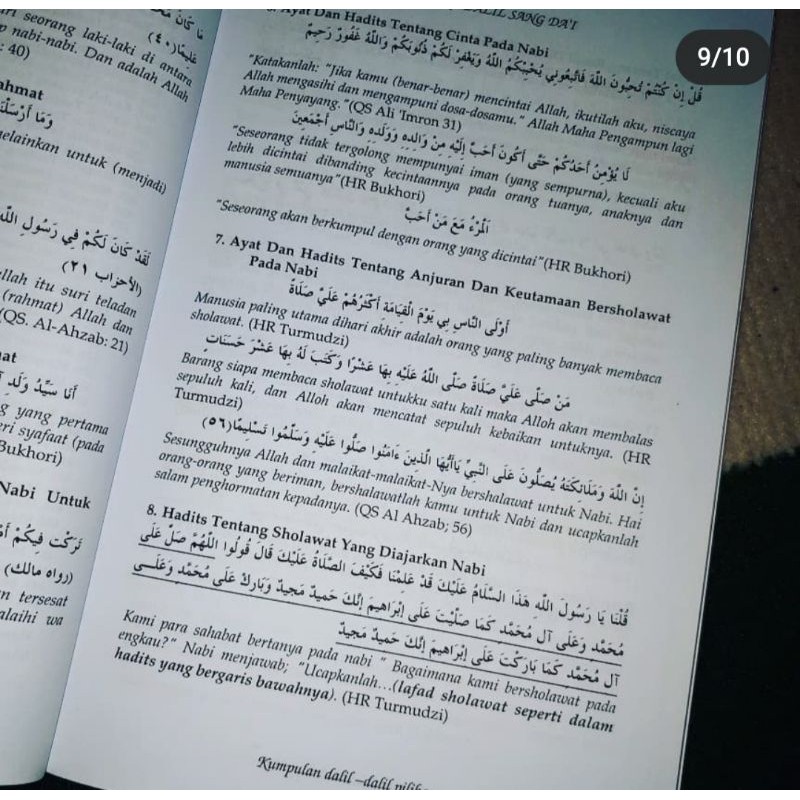 مَا كَانَ
ri seorang laki-laki di antara
nabi-nabi. Dan adalah Allah
عَلِيمًا(٤٠)
: 40)
ahmat
وَمَا أَرْسَلْنَ
elainkan untuk (menjadi)
لَقَدْ كَانَ لَكُمْ فِي رَسُولِ اللَّ
(الأحزاب ٢١)
llah itu suri teladan
(rahmat) Allah dan
(QS. Al-Ahzab: 21)
at
أَنَا سَيِّدُ وَلَدِ
g yang pertama
ri syafaat (pada
Bukhori)
Nabi Untuk
تَرَكْتُ فِيكُمْ أَمْ
(رواه مالك)
n tersesat
alaihi wa
DALIL SANG DA'I
9/10
Ayat Dan Hadits Tentang Cinta Pada Nabi
قُلْ إِنْ كُنْتُمْ تُحِبُّونَ اللَّهَ فَاتَّبِعُونِي يُحْبِبْكُمُ اللَّهُ وَيَغْفِرْ لَكُمْ ذُنُوبَكُمْ وَاللَّهُ غَفُورٌ رَحِيمٌ
"Katakanlah: "Jika kamu (benar-benar) mencintai Allah, ikutilah aku, niscaya
Allah mengasihi dan mengampuni dosa-dosamu." Allah Maha Pengampun lagi
Maha Penyayang. "(QS Ali 'Imron 31)
لَا يُؤْمِنُ أَحَدُكُمْ حَتَّى أَكُونَ أَحَبَّ إِلَيْهِ مِنْ وَالِدِهِ وَوَلَدِهِ وَالنَّاسِ أَجْمَعِينَ
"Seseorang tidak tergolong mempunyai iman (yang sempurna), kecuali aku
lebih dicintai dibanding kecintaannya pada orang tuanya, anaknya dan
manusia semuanya"(HR Bukhori)
الْمَرْءُ مَعَ مَنْ أَحَبَّ
"Seseorang akan berkumpul dengan orang yang dicintai"(HR Bukhori)
7. Ayat Dan Hadits Tentang Anjuran Dan Keutamaan Bersholawat
Pada Nabi
أَوْلَى النَّاسِ بِي يَوْمَ الْقِيَامَةِ أَكْثَرُهُمْ عَلَيَّ صَلَاةً
Manusia paling utama dihari akhir adalah orang yang paling banyak membaca
sholawat. (HR Turmudzi)
مَنْ صَلَّى عَلَيَّ صَلَاةً صَلَّى اللَّهُ عَلَيْهِ بِهَا عَشْرًا وَكَتَبَ لَهُ بِهَا عَشْرَ حَسَنَاتٍ
Barang siapa membaca sholawat untukku satu kali maka Alloh akan membalas
sepuluh kali, dan Alloh akan mencatat sepuluh kebaikan untuknya. (HR
Turmudzi)
إِنَّ اللَّهَ وَمَلَائِكَتَهُ يُصَلُّونَ عَلَى النَّبِيِّ يَاأَيُّهَا الَّذِينَ ءَامَنُوا صَلُّوا عَلَيْهِ وَسَلِّمُوا تَسْلِيمًا(٥٦)
Sesungguhnya Allah dan malaikat-malaikat-Nya bershalawat untuk Nabi. Hai
orang-orang yang beriman, bershalawatlah kamu untuk Nabi dan ucapkanlah
salam penghormatan kepadanya. (QS Al Ahzab; 56)
8. Hadits Tentang Sholawat Yang Diajarkan Nabi
قُلْنَا يَا رَسُولَ اللَّهِ هَذَا السَّلَامُ عَلَيْكَ قَدْ عَلِمْنَا فَكَيْفَ الصَّلَاةُ عَلَيْكَ قَالَ قُولُوا اللَّهُمَّ صَلِّ عَلَى
مُحَمَّدٍ وَعَلَى آلِ مُحَمَّدٍ كَمَا صَلَّيْتَ عَلَى إِبْرَاهِيمَ إِنَّكَ حَمِيدٌ مَجِيدٌ وَبَارِكْ عَلَى مُحَمَّدٍ وَعَلَى
آلِ مُحَمَّدٍ كَمَا بَارَكْتَ عَلَى إِبْرَاهِيمَ إِنَّكَ حَمِيدٌ مَجِيدٌ
Kami para sahabat bertanya pada nabi " Bagaimana kami bersholawat pada
engkau?" Nabi menjawab; "Ucapkanlah...(lafad sholawat seperti dalam
hadits yang bergaris bawahnya). (HR Turmudzi)
Kumpulan dalil –dalil pilih